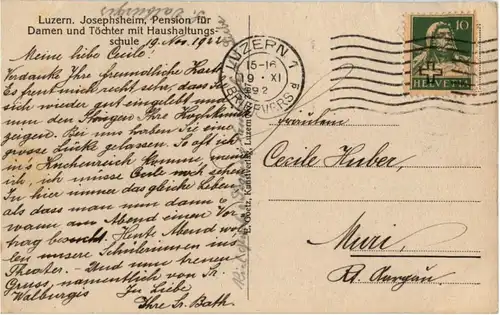 Luzern. Josephsheim, Pension für
Damen und Töchter mit Haushaltungs-
schule 19. Nov. 192
Meine liebe Cecile!
Verdanke Ihre freundliche
Es freut mich recht sehr, dass
sich wieder gut eingelebt und
nun den Ihre Kochkunst
zeigen. Bei uns haben Sie eine
grosse Lücke gelassen. So oft ich
ins Küchenreich komme, mein
ich, müsse Cecile noch sehen.
Ja hier immer das gleiche Leben
als dass man nun dann u.
wann am Abend einen Vor
trag besucht. Heute Abend wol
len unsere Schülerinnen ins
Theater. - Und nun treuen
Gruss, namentlich von Sr.
Walburgis
In Liebe
Ihre Sr. Beth
Sr. Walburgis
E. Goetz, Kunstverlag, Luzern
LUZERN 1
15-16
9. XI
192
BRIEFVERS.
10
HELVETIA
Fräulein
Cecile Huber,
Muri,
Kt. Aargau.